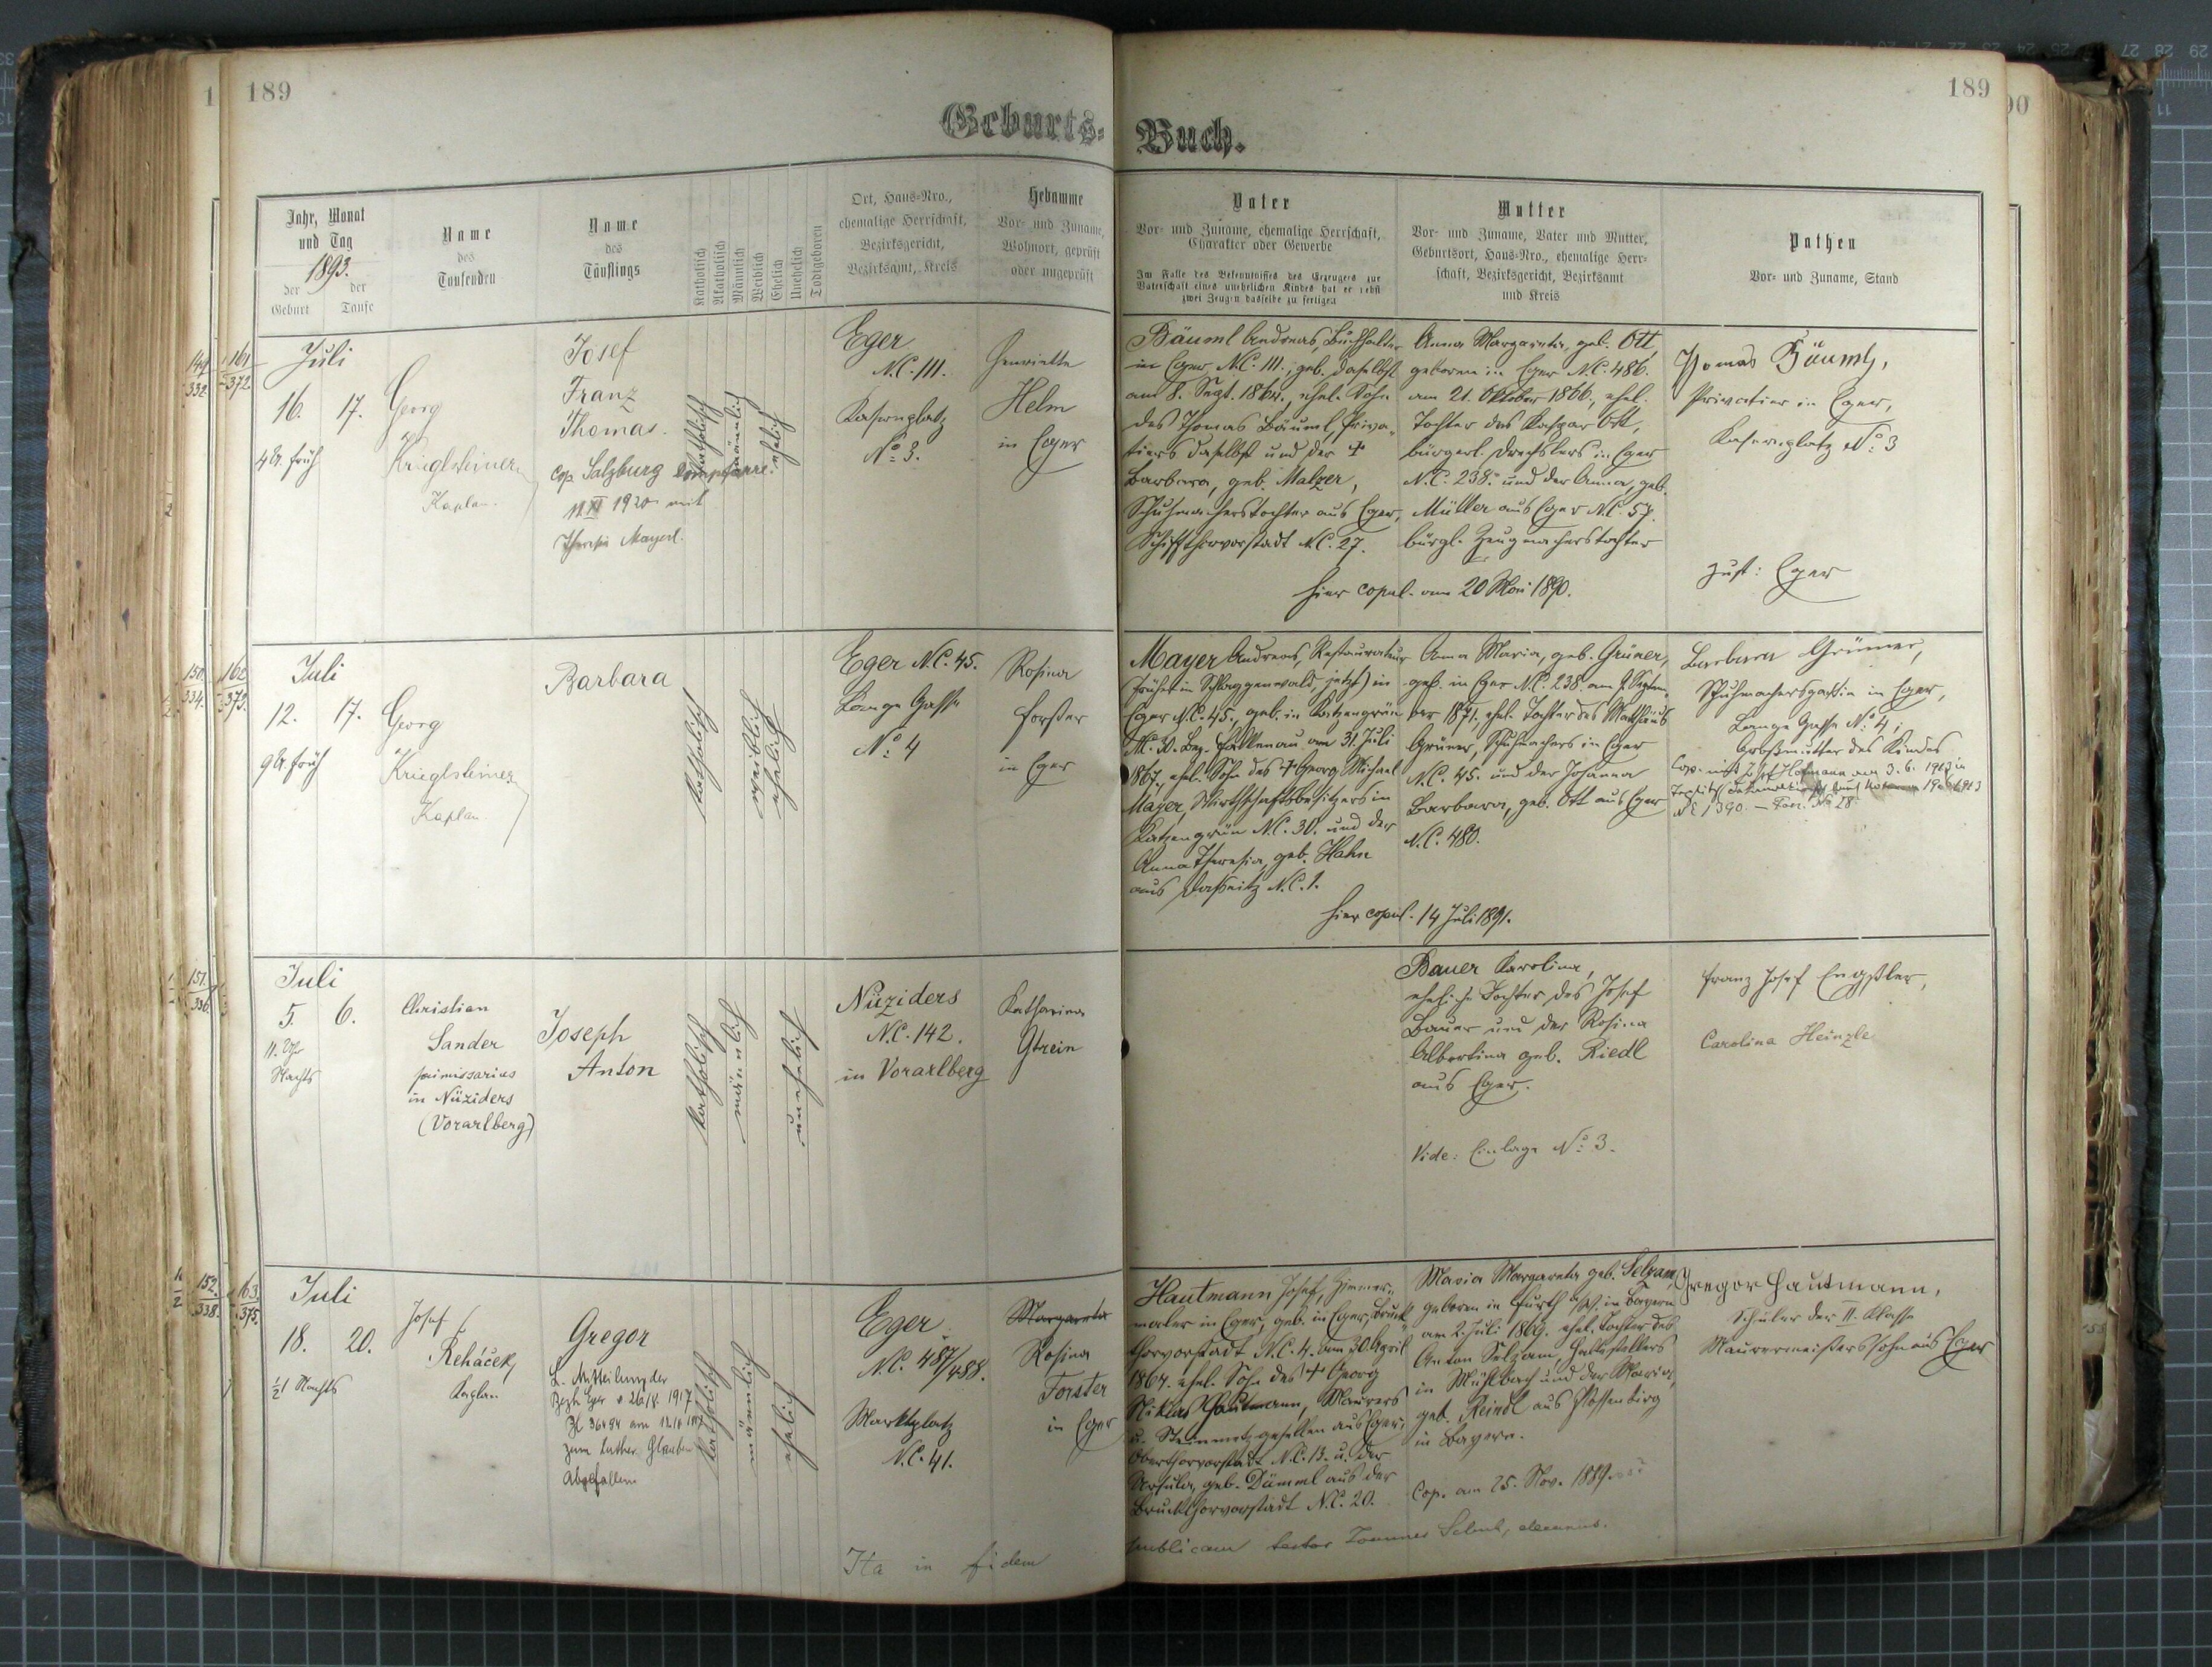 189
189
Geburts-Buch.
Jahr, Monat
und Tag
1893.
der der
Geburt Taufe
Name
des
Taufenden
Name
des
Täuflings
Katholisch
Akatholisch
Männlich
Weiblich
Ehelich
Unehelich
Todtgeboren
Ort, Haus-Nro.,
ehemalige Herrschaft,
Bezirksgericht,
Bezirksamt, Kreis
Hebamme
Vor- und Zuname,
Wohnort, geprüft
oder ungeprüft
Vater
Vor- und Zuname, ehemalige Herrschaft,
Charakter oder Gewerbe
Im Falle des Bekenntnisses des Erzeugers zur
Vaterschaft eines unehelichen Kindes hat er nebst
zwei Zeugen dasselbe zu fertigen
Mutter
Vor- und Zuname, Vater und Mutter,
Geburtsort, Haus-Nro., ehemalige Herr-
schaft, Bezirksgericht, Bezirksamt
und Kreis
Pathen
Vor- und Zuname, Stand
161
372
Juli
16. 17.
4 Ur. früh
Georg
Krieglsteiner
Kaplan.
Josef
Franz
Thomas.
Cop. Salzburg Dompfarre
11.XI 1920 mit
Theresia Mayerl.
katholisch
männlich
ehelich
Eger
N.C. 111.
Kasernplatz
No: 3.
Henriette
Helm
in Eger
Bäuml Andreas, Buchhalter
in Eger, N.C. 111., geb. daselbst
am 8. Sept. 1864, ehel. Sohn
des Thomas Bäuml, Priva-
tiers daselbst und der +
Barbara, geb. Malzer,
Schuhmacherstochter aus Eger,
Schiffthorvorstadt N.C. 27.
Anna Margareta, geb. Ott,
geboren in Eger N.C. 486.
am 21. Oktober 1866, ehel.
Tochter des Kaspar Ott,
bürgerl. Drechslers in Eger
N.C. 238. und der Anna, geb.
Müller aus Eger N.C. 57.
bürgl. Zeugmacherstochter
hier copul. am 20 Mai 1890.
Thomas Bäuml,
Privatier in Eger,
Kasernplatz No: 3
zust: Eger
162
373.
Juli
12. 17.
9 Ur. früh
Georg
Krieglsteiner
Kaplan
Barbara
katholisch
weiblich
ehelich
Eger N.C. 45.
Lange Gasse
No 4
Rosina
Forster
in Eger
Mayer Andreas, Restaurateur
(früher in Schlaggenwald, jetzt) in
Eger N.C. 45., geb. in Katzengrün
N.C. 30. Bez. Falkenau am 31. Juli
1867, ehel. Sohn des + Georg Michael
Mayer, Wirthschaftsbesitzers in
Katzengrün N.C. 30. und der
Anna Theresia, geb. Hahn
aus Daßnitz N.C. 1.
Anna Maria, geb. Grüner,
geb. in Eger N.C. 238. am 9. Septem-
ber 1871, ehel. Tochter des Matthäus
Grüner, Schuhmachers in Eger
N.C. 45. und der Johanna
Barbara, geb. Ott aus Eger
N.C. 480.
hier copul. 14 Juli 1891.
Barbara Grüner,
Schuhmachersgattin in Eger,
Lange Gasse No 4;
Großmutter des Kindes
Juli
5. 6.
11. Uhr
Nachts
Christian
Sander
primissarius
in Nüziders
(Vorarlberg)
Joseph
Anton
katholisch
männlich
unehelich
Nüziders
N.C. 142.
in Vorarlberg
Katharina
Gstrein
Bauer Karolina,
eheliche Tochter des Josef
Bauer und der Rosina
Albertina geb. Riedl
aus Eger.
Vide: Einlage No: 3.
Franz Josef Engstler,
Carolina Heinzle
163
375.
Juli
18. 20.
½1 Nachts
Josef
Reháček
Kaplan
Gregor
L. Mitteilung der
Bezh Eger v 26/8. 1917
Zl 36494 am
zum luther. Glauben
Abgefallen
katholisch
männlich
ehelich
Eger
N.C. 487/488.
Marktplatz
N.C. 41.
Margareta
Rosina
Forster
in Eger
Hautmann Josef, Zimmer-
maler in Eger, geb. in Eger, Bruck-
thorvorstadt N.C. 4. am 30. April
1864. ehel. Sohn des + Georg
Niklas Hautmann, Maurers
u. Steinmetzgesellen aus Eger,
Oberthorvorstadt N.C. 13. u. der
Ursula, geb. Dümml aus der
Bruckthorvorstadt N.C. 20.
Maria Margareta geb. Selzam
geboren in Furth a/W. in Bayern
am 2. Juli 1869. ehel. Tochter des
Anton Selzam,
in Mühlbach und der Maria,
geb. Reindl aus Flossenbürg
in Bayern.
Cop. am 25. Nov. 1889.
Gregor Hautmann,
Schüler der II. Klasse
Maurermeisterssohn aus Eger
Ita in fidem publicam testor Joannes decanus.